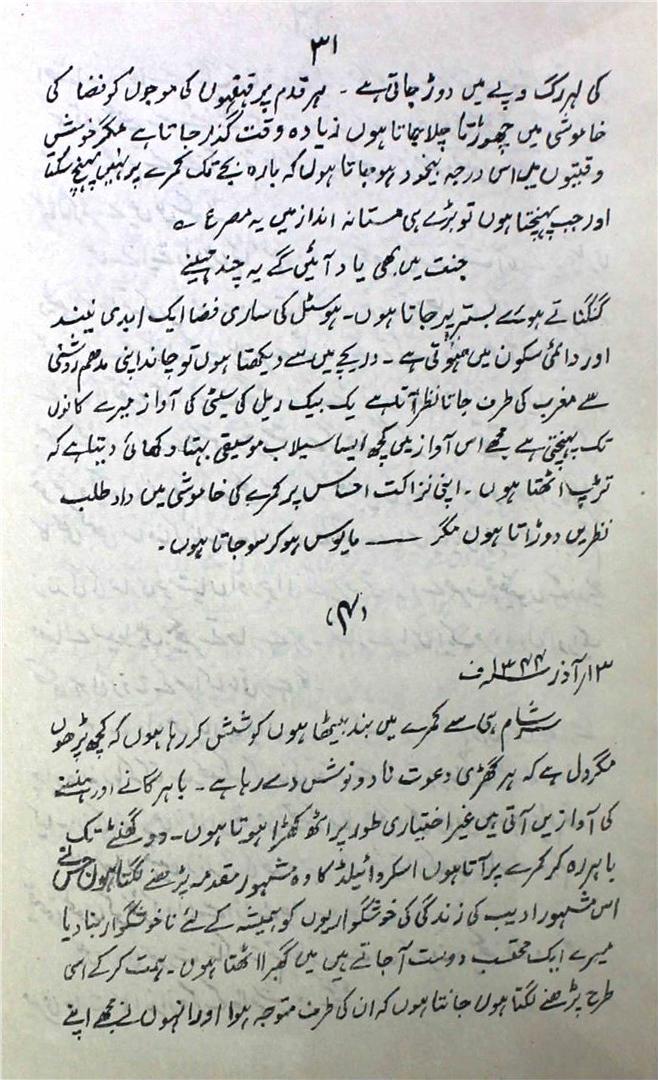 ۳۱
کی لہر رگ و پے میں دوڑ جاتی ہے ۔ ہر قدم پر قہقہوں کی موجوں کو فضا کی
خاموشی میں چھوڑتا چلا جاتا ہوں زیادہ وقت گذر جاتا ہے مگر خوش
وقتیوں میں اس درجہ بیخود ہو جاتا ہوں کہ بارہ بجے تک کمرے پر نہیں پہنچ سکتا
اور جب پہنچتا ہوں تو بڑے ہی مستانہ انداز میں یہ مصرع ؎
جنت میں بھی یاد آئیں گے یہ چند مہینے
گنگناتے ہوئے بستر پر جاتا ہوں ۔ ہوسٹل کی ساری فضا ایک ابدی نیند
اور دائمی سکون میں ہوتی ہے ۔ دریچے میں سے دیکھتا ہوں تو چاند اپنی مدھم روشنی
سے مغرب کی طرف جاتا نظر آتا ہے یک بیک ریل کی سیٹی کی آواز میرے کانوں
تک پہنچتی ہے مجھے اس آواز میں کچھ ایسا سیلاب موسیقی بہتا دکھائی دیتا ہے کہ
تڑپ اٹھتا ہوں ۔ اپنی نزاکت احساس پر کمرے کی خاموشی میں داد طلب
نظریں دوڑاتا ہوں مگر ــــــ مایوس ہو کر سو جاتا ہوں ۔
(۴)
۱۳ر آذر ۱۳۴۴ف
سر شام ہی سے کمرے میں بند بیٹھا ہوں کوشش کر رہا ہوں کہ کچھ پڑھوں
مگر دل ہے کہ ہر گھڑی دعوت نا دو نوش دے رہا ہے ۔ باہر گانے اور ہنسنے
کی آوازیں آتی ہیں غیر اختیاری طور پر اٹھ کھڑا ہوتا ہوں ۔ دو گھنٹے تک
باہر رہ کر کمرے پر آتا ہوں اسکر وائیلڈ کا وہ مشہور مقدمہ پڑھنے لگتا ہوں جس نے
اس مشہور ادیب کی زندگی کی خوشگواریوں کو ہمیشہ کے لئے ناخوشگوار بنا دیا
میرے ایک محتسب دوست آ جاتے ہیں میں گھبرا اٹھتا ہوں ۔ ہمت کر کے اسی
طرح پڑھنے لگتا ہوں جانتا ہوں کہ ان کی طرف متوجہ ہوا اور انہوں نے مجھے اپنے